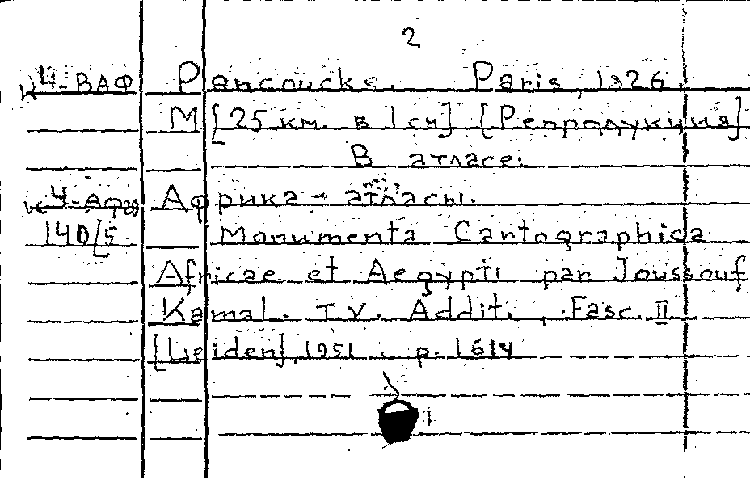 2
К 4-ВАФ Pancoucke. Paris, 1826.
М [25 км. в 1 см] [Репродукция]
В атласе:
К 4-Афр Африка - атласы.
140/5 Monumenta Cartographica
Africae et Aegypti par Joussouf
Kamal. T. V. Addit., Fasc. II
[Leiden], 1951. p. 1614